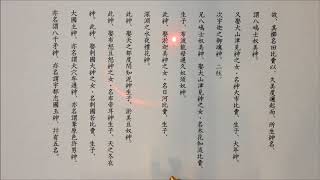 故、其櫛名田比賣以、久美度邇起而、所生神名、
謂八嶋士奴美神。
又娶大山津見神之女・名神大市比賣、生子、大年神、
次宇迦之御魂神。二柱。
兄八嶋士奴美神、娶大山津見神之女・名木花知流比賣、
生子、布波能母遲久奴須奴神。
此神、娶淤迦美神之女・名日河比賣、生子、
深淵之水夜禮花神。
此神、娶天之都度閇知泥神生子、淤美豆奴神。
此神、娶布怒豆怒神之女・名布帝耳神生子、天之冬衣神。
此神、娶刺國大神之女・名刺國若比賣、生子、
大國主神、亦名謂大穴牟遲神、亦名謂葦原色許男神、
亦名謂八千矛神、亦名謂宇都志國玉神、幷有五名。